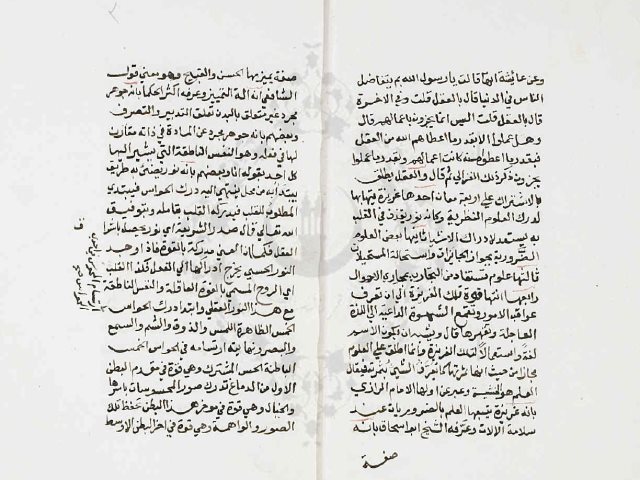 وعن عائشة انها قالت يا رسول الله بم يتفاضل
الناس في الدنيا قال بالعقل قلت وفي الاخرة
قال بالعقل قلت اليس انما يجزون باعمالهم قال
وهل عملوا الا بقدر ما اعطاهم الله من العقل
فبقدر ما اعطوا منه كانت اعمالهم وبقدر ما عملوا
يجزون ذكر ذلك الغزالي ثم قال والعقل يطلق
بالاشتراك على اربعة معان احدها غريزة يتهيأ بها
لدرك العلوم النظرية وكأنه نور يقذف في القلب
به يستعد لادراك الاشياء ثانيها بعض العلوم
الضرورية بجواز الجائزات واستحالة المستحيلات
ثالثها علوم تستفاد من التجارب بمجاري الاحوال
رابعها انتهاء قوة تلك الغريزة الى ان تعرف
عواقب الامور وتقمع الشهوة الداعية الى اللذة
العاجلة وتقهرها قال ويشبه ان يكون الاسم
لغة واستعمالا لتلك الغريزة وانما اطلق على العلوم
مجازا من حيث انها ثمرتها كما يعرف الشئ بثمرته فيقال
العلم هو الخشية وعبر عن اولها الامام الرازي
بانه غريزة يتبعها العلم بالضروريات عند
سلامة الالات وعرفه الشيخ ابو اسحاق بانه
صفة
صفة يميز بها الحسن والقبيح وهو معنى قول
الشافعي انه الة التمييز وعرفه اكثر الحكما بانه جوهر
مجرد غير متعلق بالبدن تعلق التدبير والتصرف
وبعضهم بانه جوهر مجرد عن المادة في ذاته مقارن
لها في فعله وهو النفس الناطقة التي يشير اليها
كل احد بقوله انا وبعضهم بانه نور يضئ به طريق
يبتدأ به من محل ينتهي اليه درك الحواس فيبتدي
المطلوب للقلب فيدركه القلب بتامله وبتوفيق
الله تعالى قال صدر الشريعة اي نور يحصل باشراق
العقل فكما ان العين مدركة بالقوة فاذا وجد
النور الحسي يخرج ادراكها الى الفعل فكذا القلب
اي الروح المسمى بالقوة العاقلة والنفس الناطقة
مع هذا النور العقلي وابتدا درك الحواس
الخمس الظاهرة اللمس والذوق والشم والسمع
والبصر ونهايته ارتسامه في الحواس الخمس
الباطنة الحس المشترك وهي قوة في مقدم البطن
الاول من الدماغ تدرك صور المحسوسات باسرها
والخيال وهي قوة في موخر هذا البطن تحفظ تلك
الصور والواهمة وهي قوة في اخر البطن الاوسط